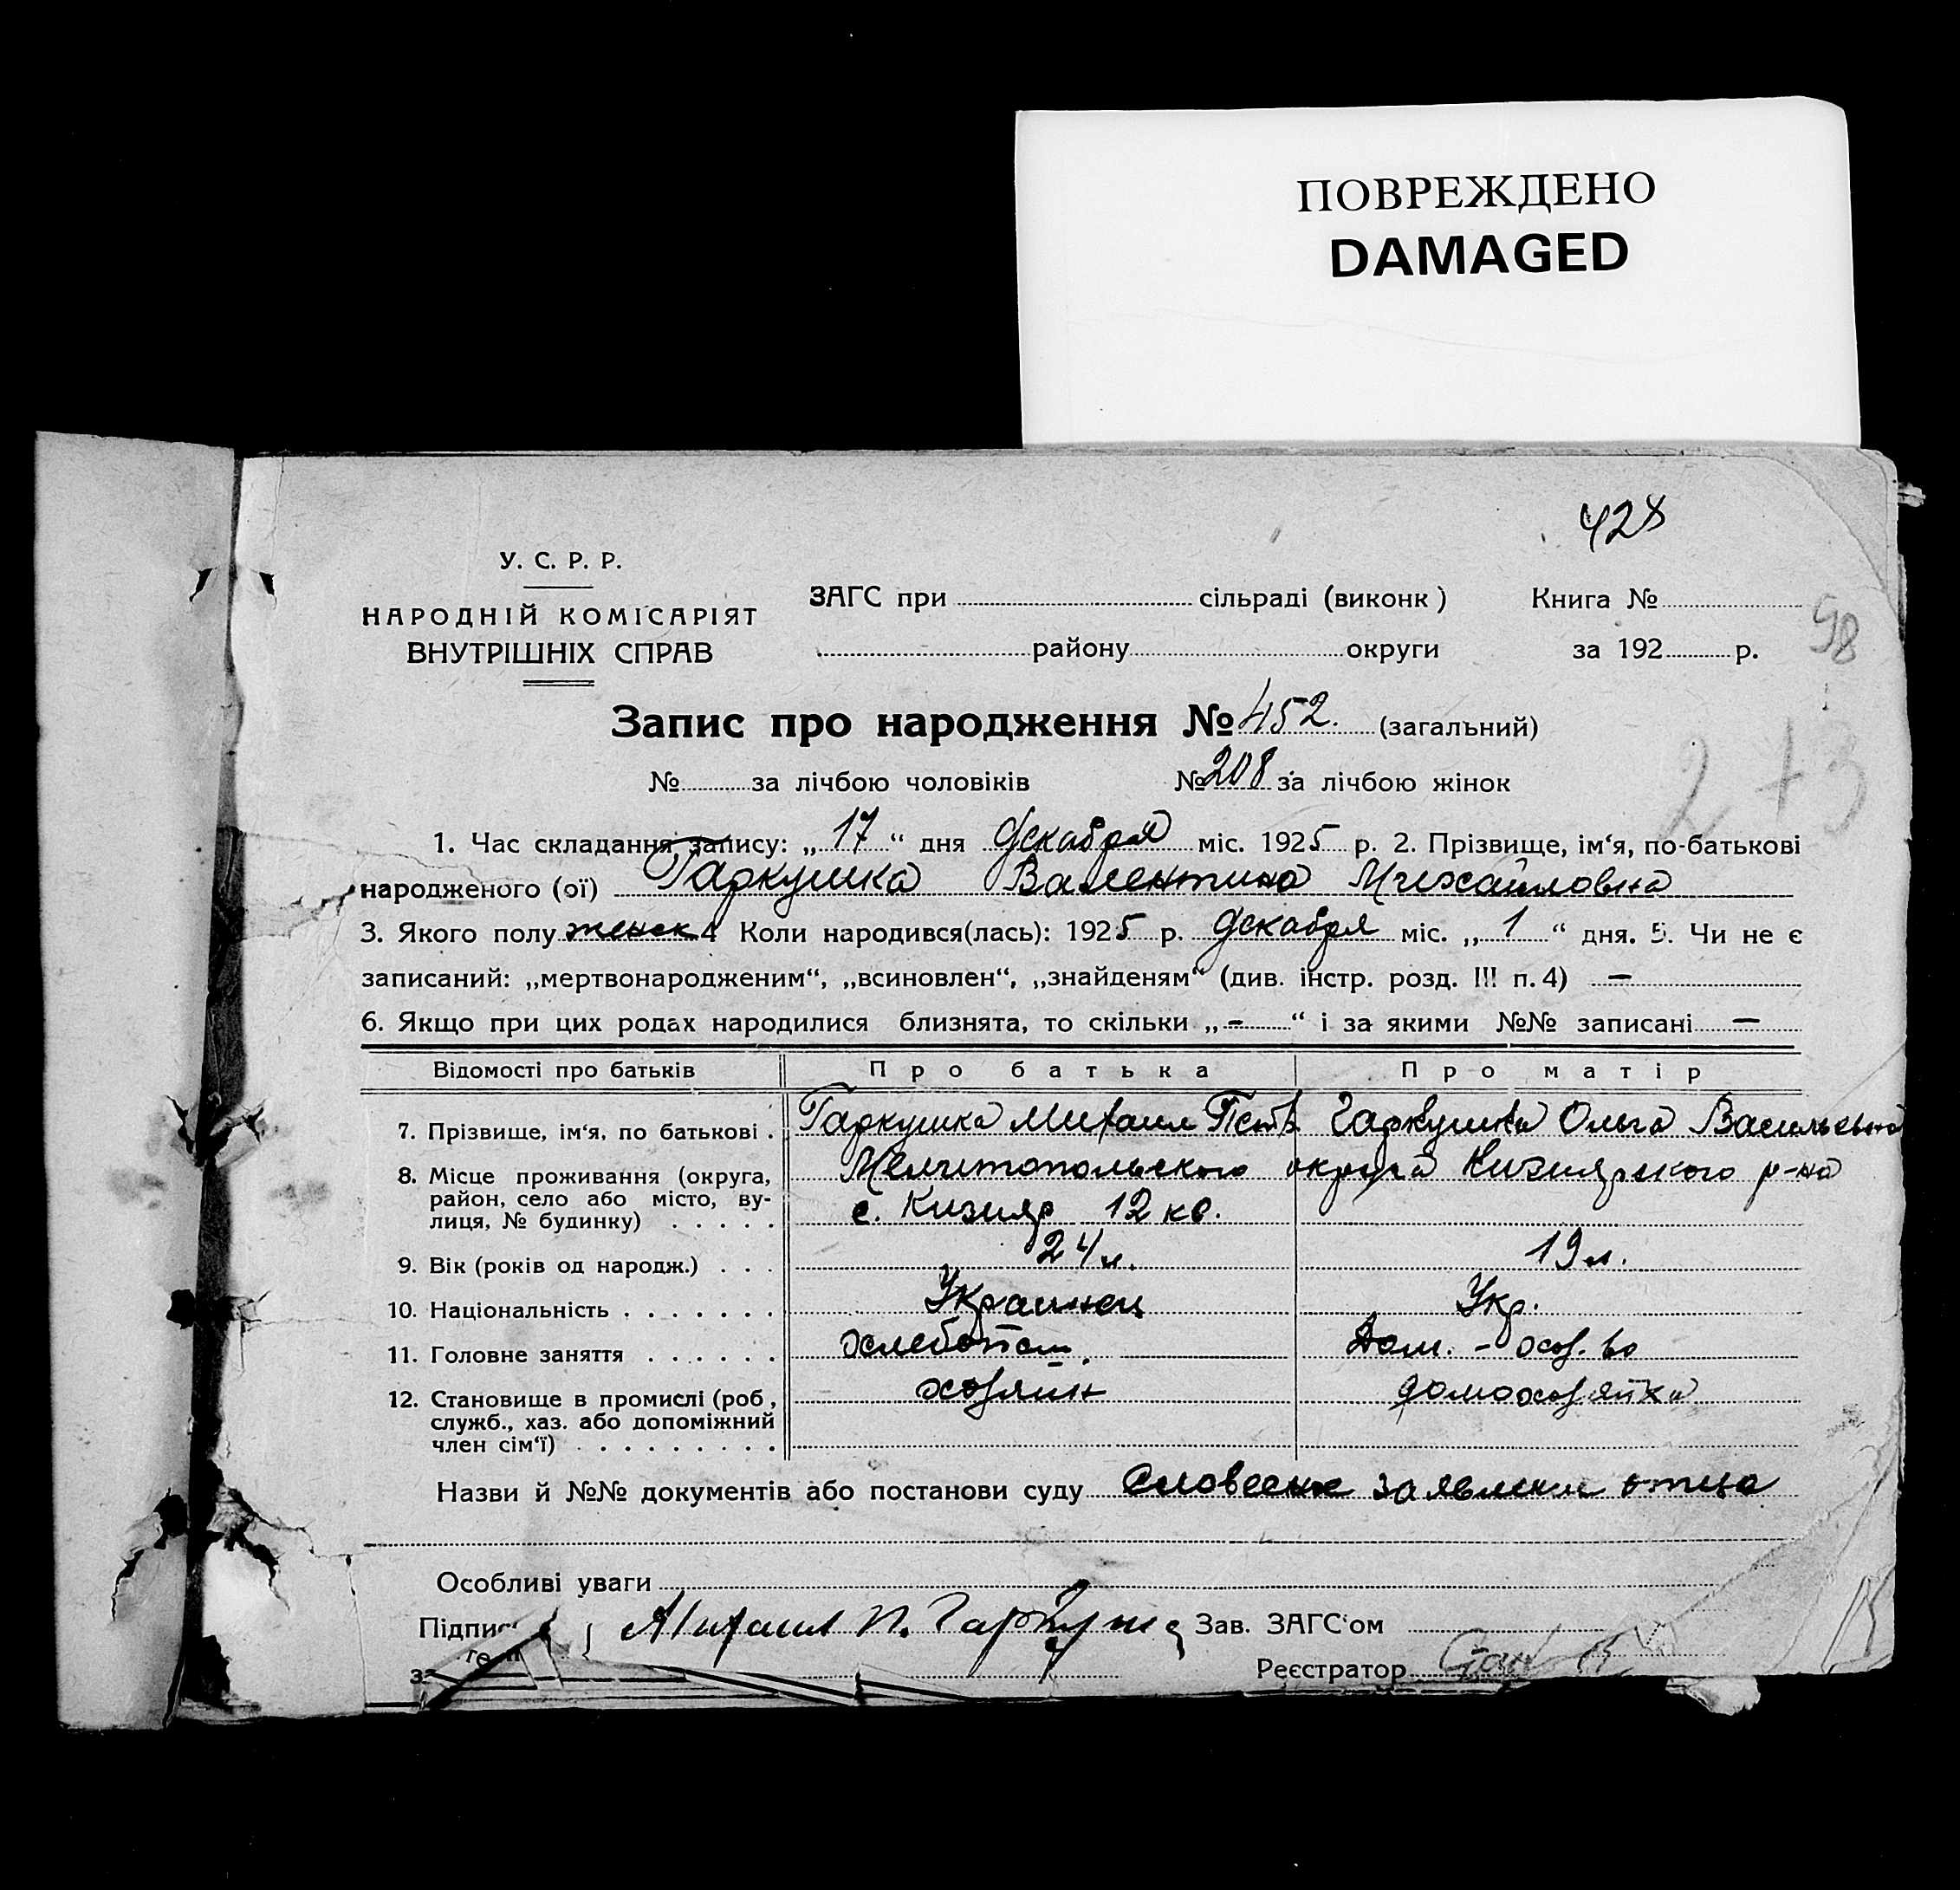 ПОВРЕЖДЕНО
DAMAGED
428
У. С. Р. Р.
НАРОДНІЙ КОМІСАРІЯТ
ВНУТРІШНІХ СПРАВ
ЗАГС при сільраді (виконк) Книга №
району округи за 192 р.
98
Запис про народження № 452. (загальний)
2+3
№ за лічбою чоловіків № 208 за лічбою жінок
1. Час складання запису: „17“ дня декабря міс. 1925 р. 2. Прізвище, ім‘я, по-батькові
народженого (ої) Гаркушка Валентина Михайловна
3. Якого полу женск 4 Коли народився(лась): 1925 р. декабря міс. „1“ дня. 5. Чи не є
записаний: „мертвонародженим“, „всиновлен“, „знайденям“ (див. інстр. розд. III п. 4) —
6. Якщо при цих родах народилися близнята, то скільки „-“ і за якими №№ записані —
Відомості про батьків Про батька Про матір
7. Прізвище, ім‘я, по батькові . Гаркушка Михаил Петр Гаркушка Ольга Васильевна
8. Місце проживання (округа, Мелитопольского округа Кизиярского р-на
район, село або місто, ву-
лиця, № будинку) . . . . . с. Кизияр 12 кв.
9. Вік (років од народж.) . . . 24 л. 19 л.
10. Національність . . . . . . . Украинец Укр.
11. Головне заняття . . . . . . хлебопаш. Дом. - хоз. во
12. Становище в промислі (роб, хозяин домохозяйка
служб., хаз. або допоміжний
член сім‘ї) . . . . . . . . .
Назви й №№ документів або постанови суду Словесные заявлени отца
Особливі уваги
Підпис Михаил П. Гаркуша Зав. ЗАГС‘ом
Реєстратор